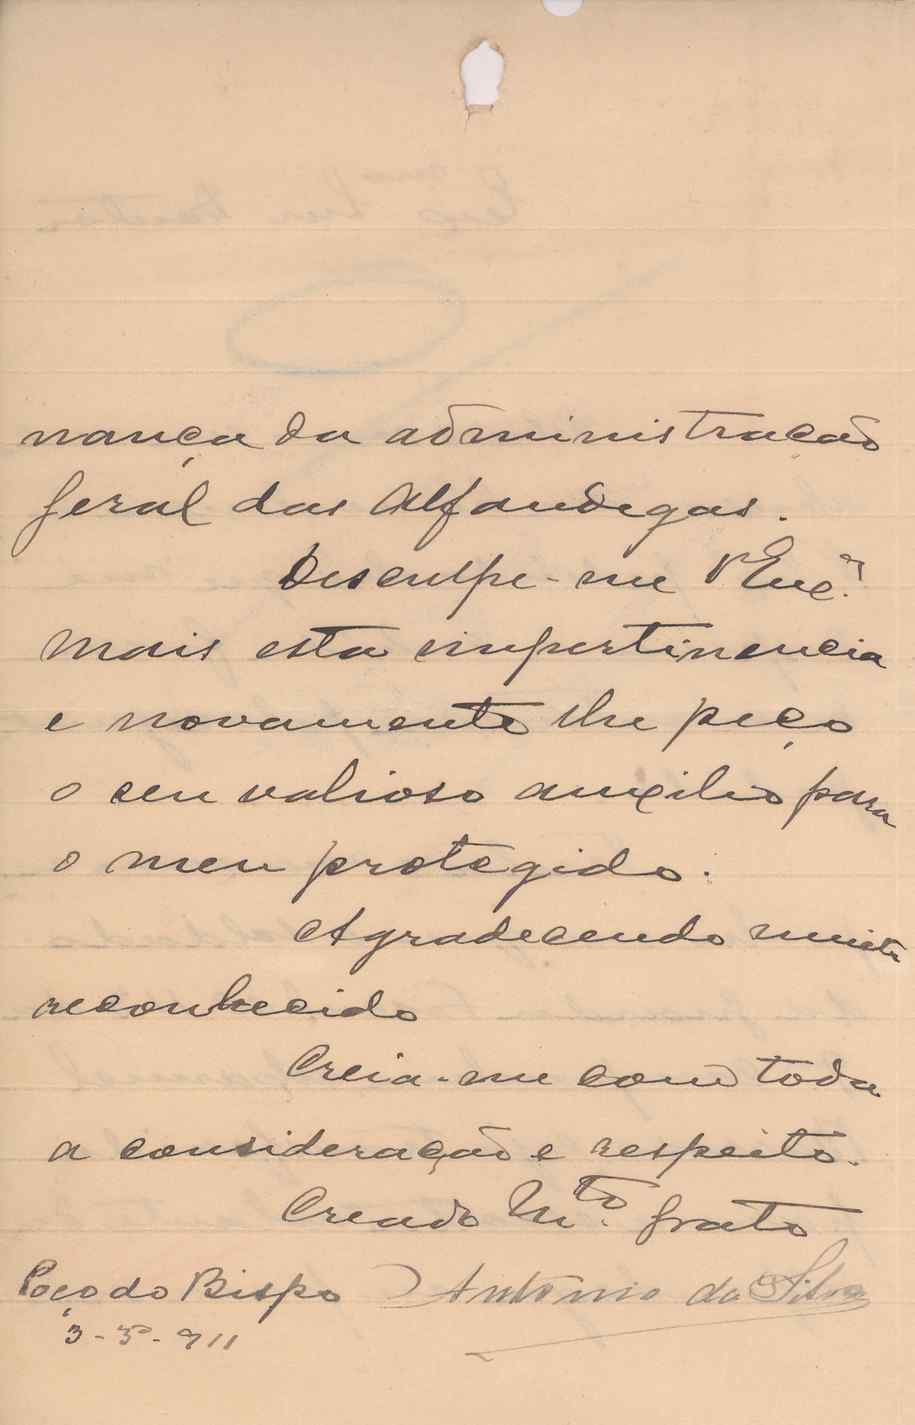 nança da administração
geral das Alfandegas.
Desculpe-me V Exc.ª
mais esta impertinencia
e novamente lhe peço
o seu valioso auxilio para
o meu protegido.
Agradecendo muito
reconhecido
Creia-me com toda
a consideração e respeito.
Creado M.to grato
Poço do Bispo Antonio da Silva
3-5-911